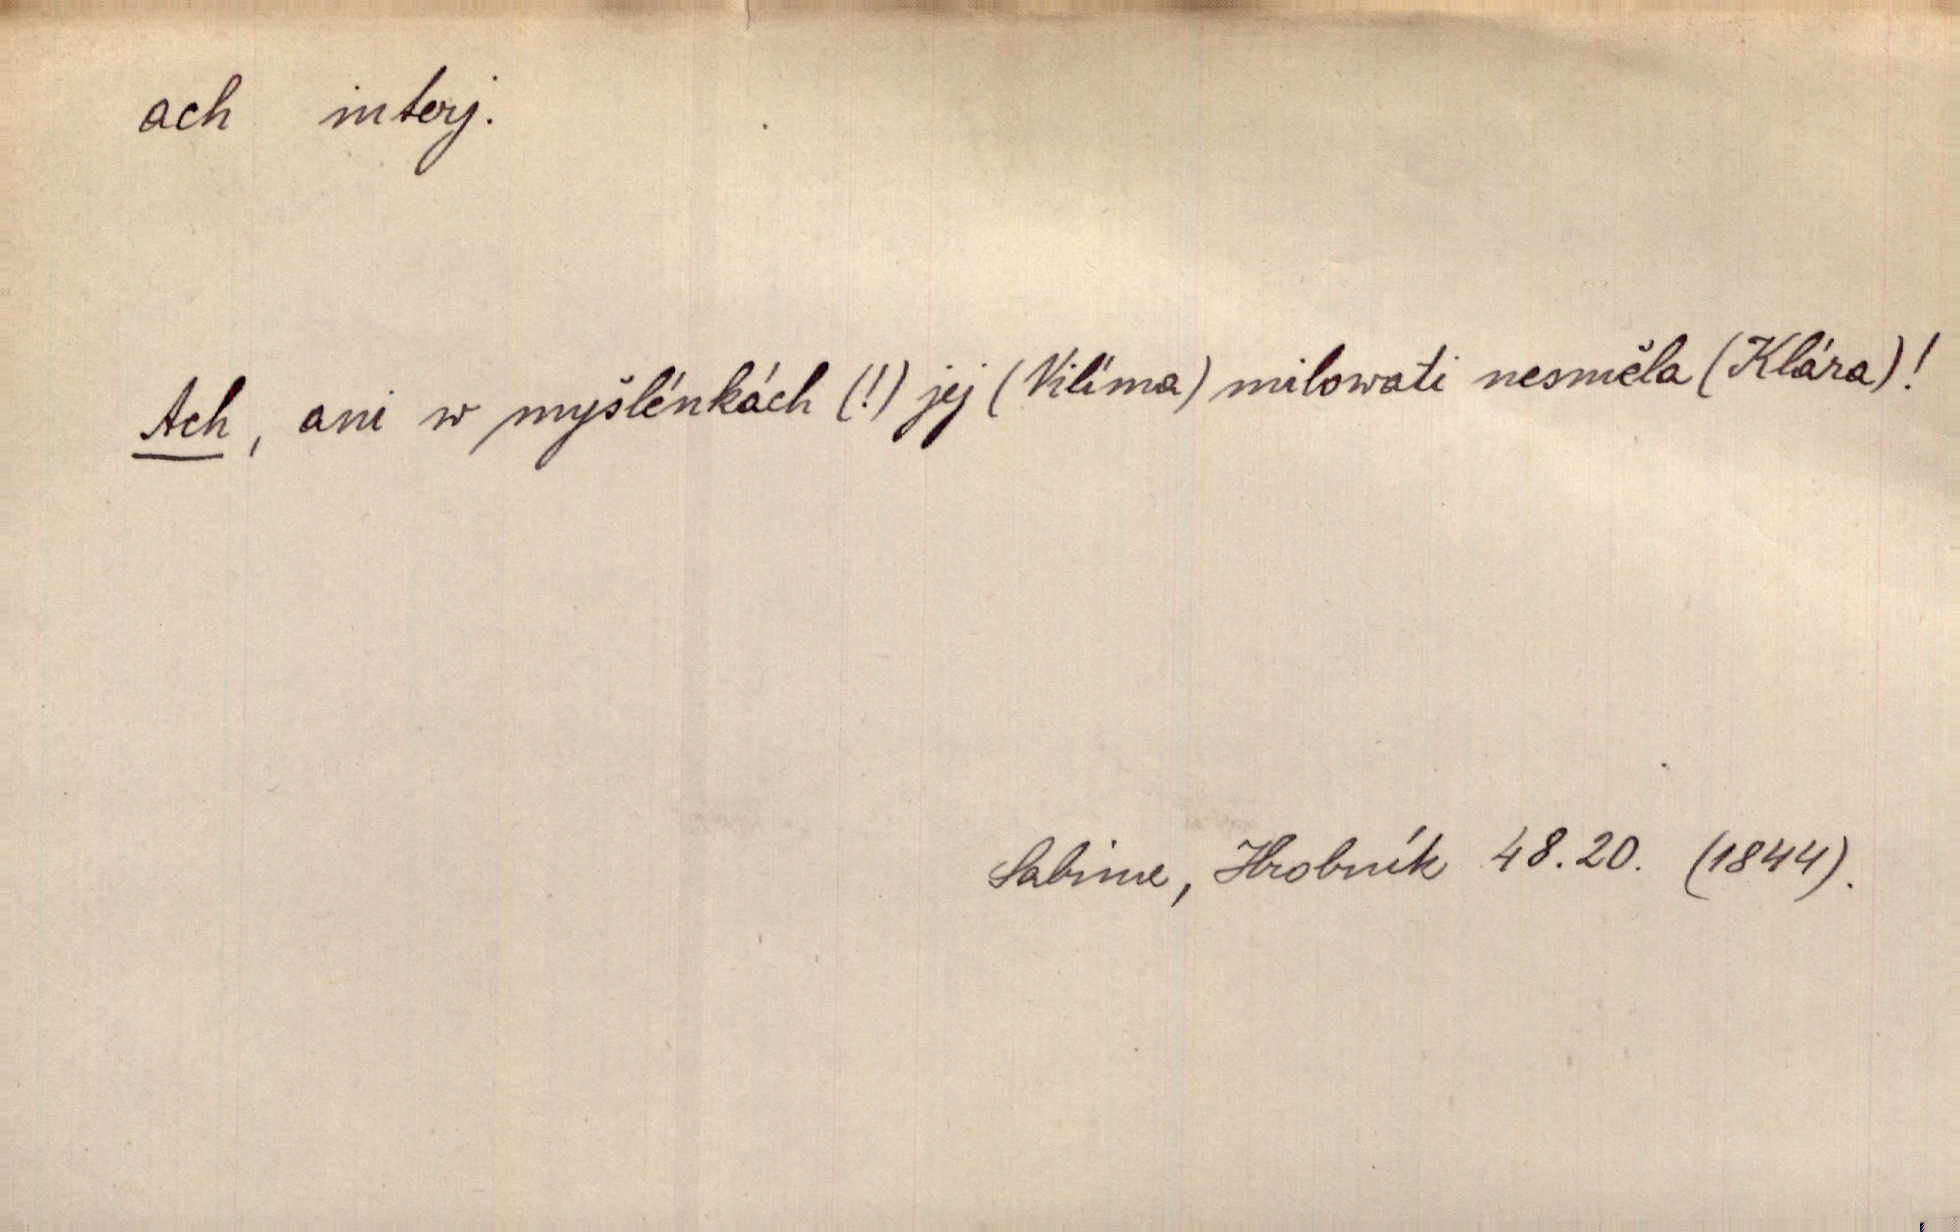 ach interj.
Ach, ani w myšlénkách (!) jej (Vilíma) milowati nesměla (Klára)!
Sabina, Hrobník 48.20. (1844).